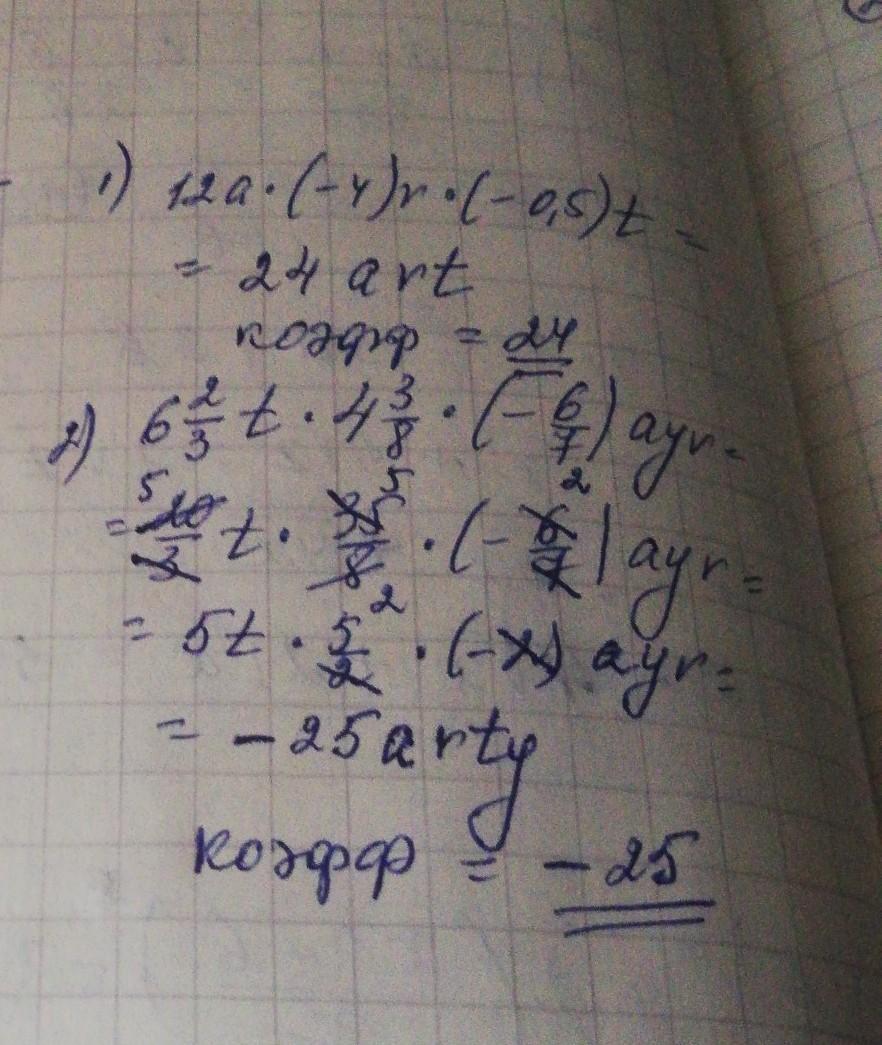 1) 12a · (-4)r · (-0,5)t =
= 24 art
коэфф = 24
2) 6 2/3 t · 4 3/8 · (- 6/7) ayr =
5 5 2
= 20/3 t · 35/8 · (- 6/7) ayr =
2
= 5t · 5/2 · (-2) ayr =
= - 25 arty
коэфф = - 25